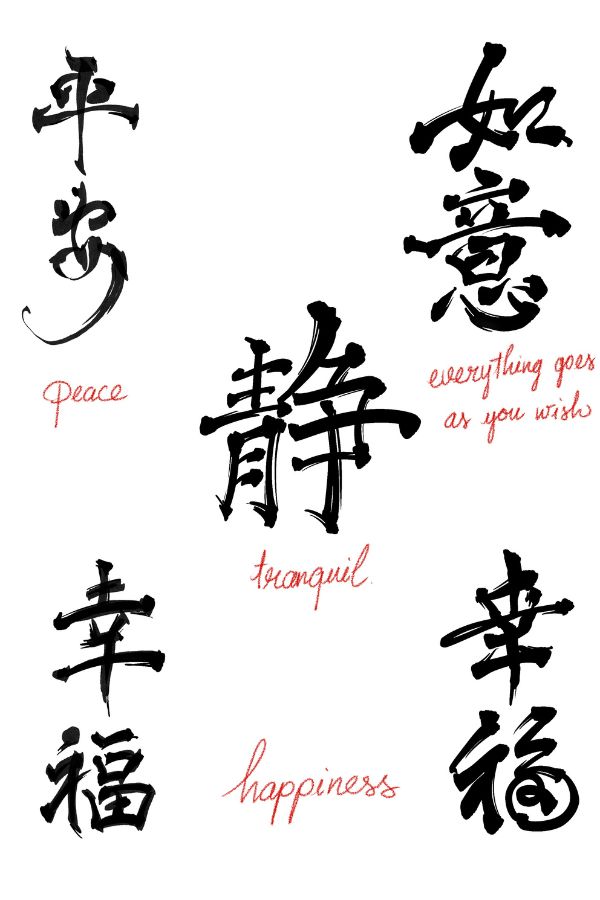 平安
peace
如意
everything goes
as you wish
静
tranquil.
幸福
happiness
幸福